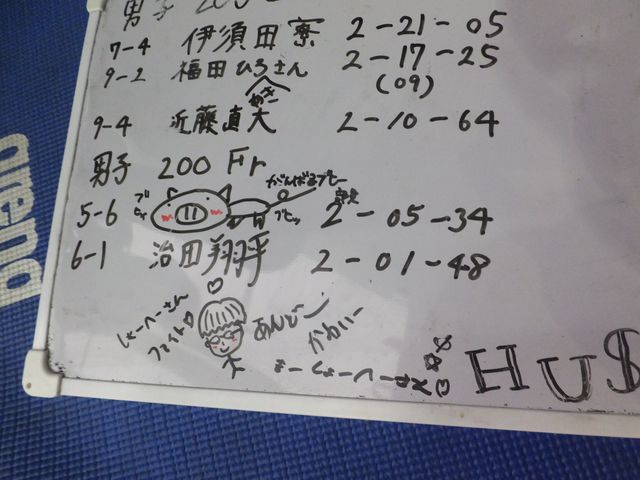 男子 200
7-4 伊須田寮 2-21-05
9-2 福田ひろさん 2-17-25
(09)
めざー
9-4 近藤直大 2-10-64
男子 200 Fr
がんばるブヒー
5-6 ブヒィ ブヒッ 2-05-34
6-1 治田翔平 2-01-48
しょーへーさん
ファイト
あんどー
かわいー
しょーへーさん
HU$
arena